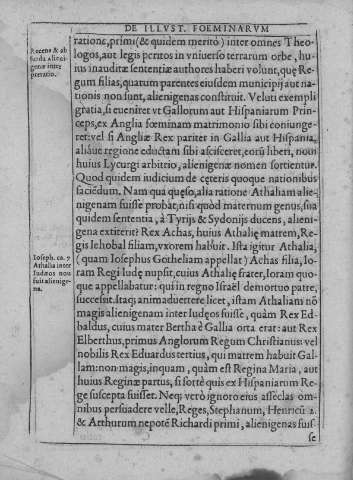 DE ILLVST. FOEMINARVM
ratione, primi (& quidem merito) inter omnes Theo-
logos, aut legis peritos in vniuerso terrarum orbe, hu-
ius inauditæ sententiæ authores haberi volunt, quę Regum
filias, quatum parentes eiusdem municipij aut na-
tionis non sunt, alienigenas constituit. Veluti exempli
gratia, si eueniret vt Gallorum aut Hispaniarum Prin-
ceps, ex Anglia fœminam matrimonio sibi coniunge-
ret: vel si Angliæ Rex pariter in Gallia aut Hispania,
aliâue regione eductam sibi ascisceret, eorū liberi, nou
huius Lycurgi arbitrio, alienigenæ nomen sortientur.
Quod quidem iudicium de cęteris quoque nationibus
faciēdum. Nam qua quęso, alia ratione Athaliam alie-
nigenam fuisse probat, nisi quòd maternum genus, sua
quidem sententia, à Tyrijs & Sydonijs ducens, alieni-
gena extiterit? Rex Achas, huius Athalię matrem, Re-
gis Iehobal filiam, vxorem habuit. Ista igitur Athalia,
(quam Iosephus Gotheliam appellat) Achas filia, Io-
ram Regi Iudę nupsit, cuius Athalię frater, Ioram quo-
que appellabatur: qui in regno Israël demortuo patre,
successit. Itaq; animaduertere licet, istam Athaliam nō
magis alienigenam inter Iudęos fuisse, quàm Rex Ed-
baldus, cuius mater Bertha è Gallia orta erat: aut Rex
Elberthus, primus Anglorum Regum Christianus: vel
nobilis Rex Eduardus tertius, qui matrem habuit Gal-
lam: non magis, inquam, quàm est Regina Maria, aut
huius Reginæ partus, si fortè quis ex Hispaniarum Re-
ge suscepta fuisset. Neq; verò ignoro eius asseclas om-
nibus persuadere velle, Reges, Stephanum, Henricū 2.
& Arthurum nepotē Richardi primi, alienigenas fuis
se
Recens & ab
surda alieni-
genæ inter
pretatio.
Ioseph. ca. 7
Athalia inter
Iudæos non
fuit alienige-
na.